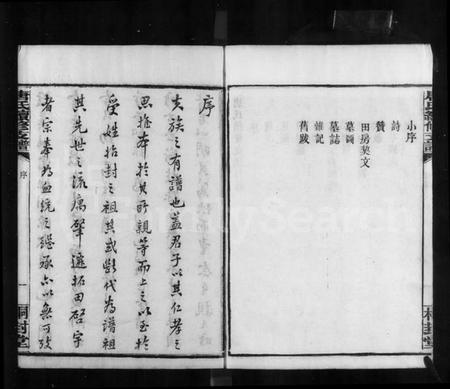 小序
詩
贊
田房契文
墓圖
墓誌
雜記
舊跋
唐氏續修支譜
桐封堂
序
夫族之有譜也蓋君子以其仁孝之
思推本於其所親等而上之以至於
受姓始封之祖其或斷代為譜祖
其先世之流寓肇遷拓田啓宇
者宗奉為血統之繼承亦以無可攷
唐氏續修支譜
序
一
桐封堂
Search